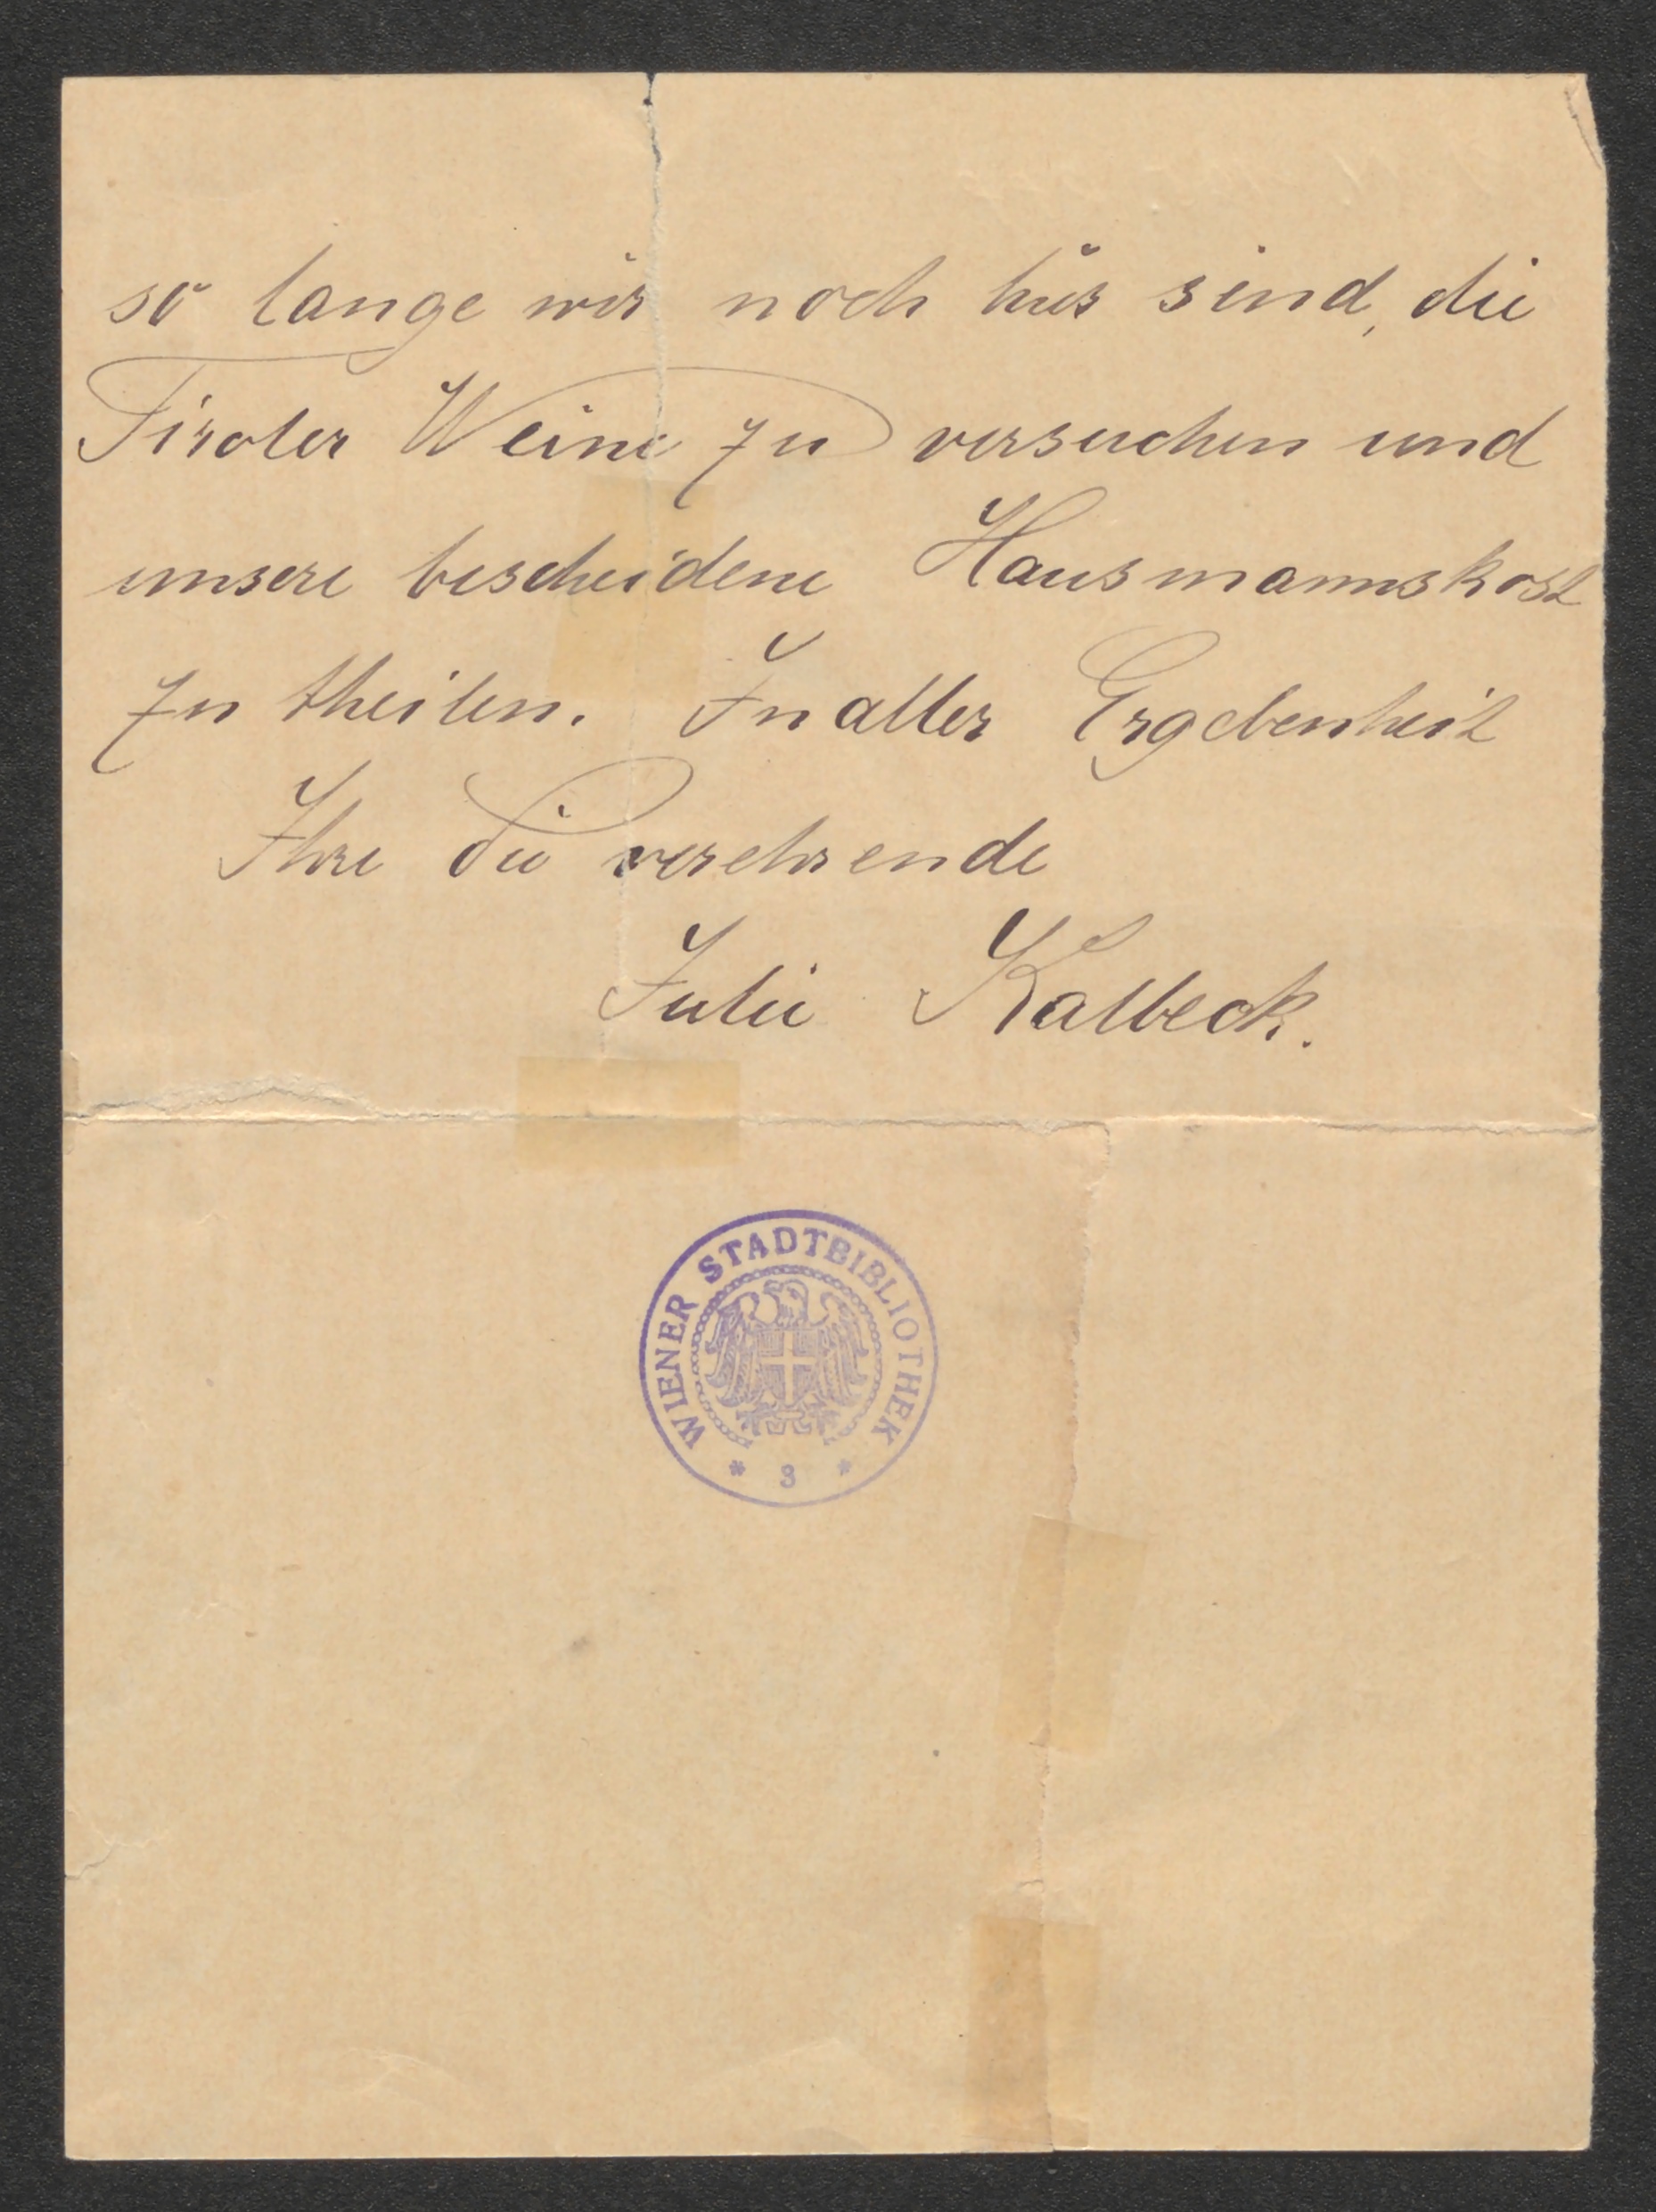 so lange wir noch hier sind, die
Tiroler Weine zu versuchen und
unsere bescheidene Hausmannskost
zu theilen. In aller Ergebenheit
Ihre Sie verehrende
Julie Kalbeck.
WIENER STADTBIBLIOTHEK
* 3 *